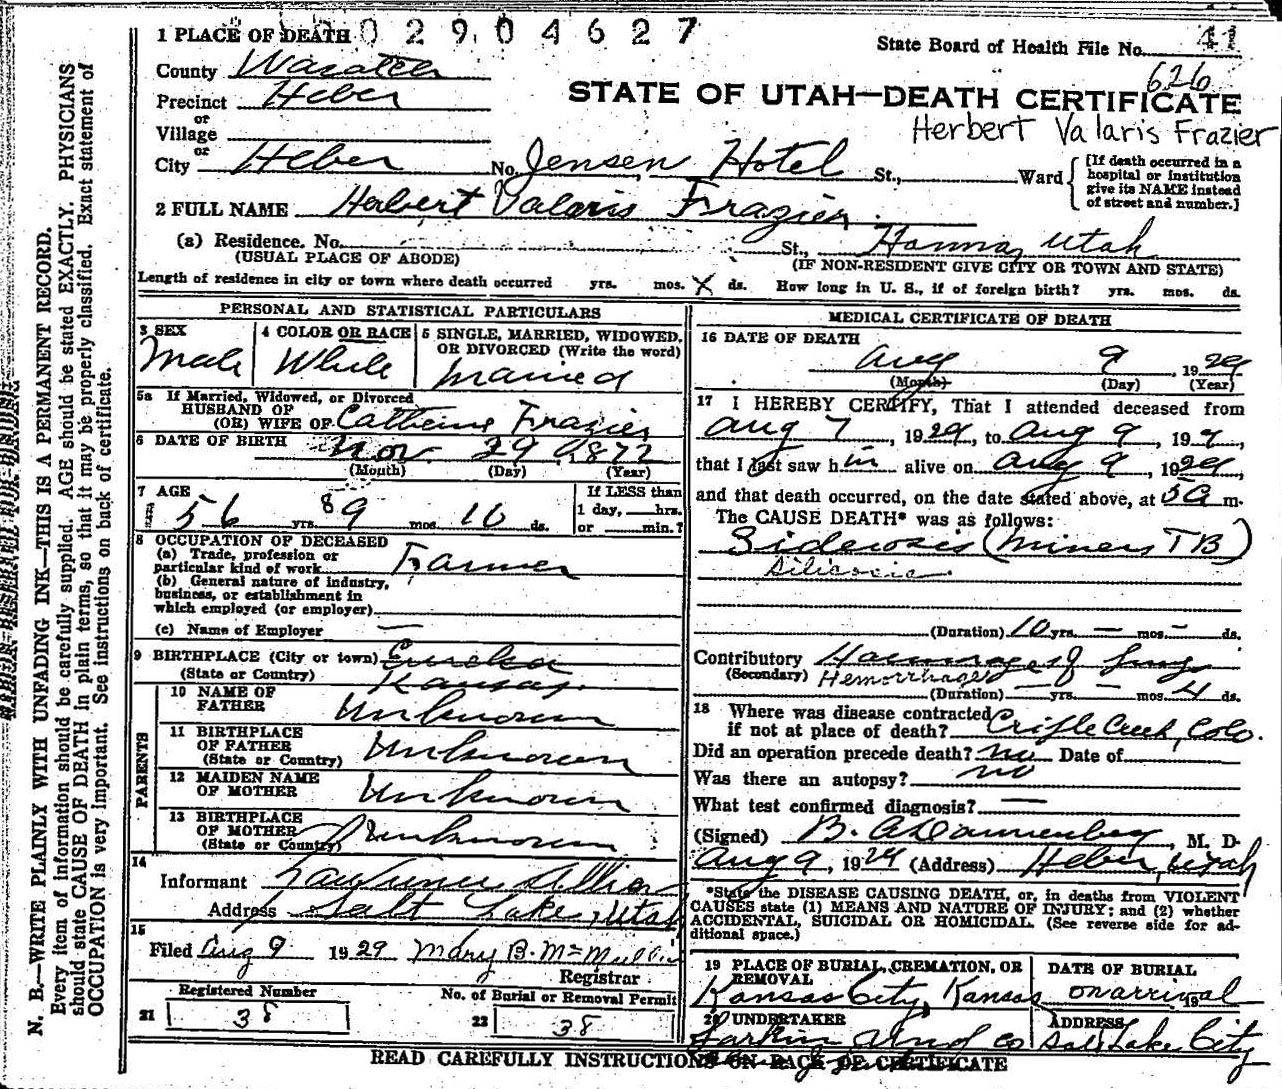 1 PLACE OF DEATH 0 2 9 0 4 6 2 7
State Board of Health File No. 41
626
County Wasatch
Precinct Heber
or
Village
or
City Heber No. Jensen Hotel St., Ward
[If death occurred in a
hospital or institution
give its NAME instead
of street and number.]
STATE OF UTAH—DEATH CERTIFICATE
Herbert Valaris Frazier
2 FULL NAME Herbert Valaris Frazier
(a) Residence. No. St., Hanna, Utah
(USUAL PLACE OF ABODE) (IF NON-RESIDENT GIVE CITY OR TOWN AND STATE)
Length of residence in city or town where death occurred yrs. mos. X ds. How long in U. S., if of foreign birth? yrs. mos. ds.
PERSONAL AND STATISTICAL PARTICULARS
3 SEX
Male
4 COLOR OR RACE
White
5 SINGLE, MARRIED, WIDOWED,
OR DIVORCED (Write the word)
Married
5a If Married, Widowed, or Divorced
HUSBAND OF
(OR) WIFE OF Catherine Frazier
6 DATE OF BIRTH Nov 29 1872
(Month) (Day) (Year)
7 AGE
56 yrs. 8 9 mos. 10 ds.
If LESS than
1 day, hrs.
or min.?
8 OCCUPATION OF DECEASED
(a) Trade, profession or
particular kind of work Farmer
(b) General nature of industry,
business, or establishment in
which employed (or employer)
(c) Name of Employer —
9 BIRTHPLACE (City or town) Eureka
(State or Country) Kansas.
PARENTS
10 NAME OF
FATHER Unknown
11 BIRTHPLACE
OF FATHER Unknown
(State or Country)
12 MAIDEN NAME
OF MOTHER Unknown
13 BIRTHPLACE
OF MOTHER Unknown
(State or Country)
14
Informant
Address Salt Lake, Utah
15
Filed Aug 9 1929 Mary B. McMullin
Registrar
Registered Number
21 38
No. of Burial or Removal Permit
22 38
MEDICAL CERTIFICATE OF DEATH
16 DATE OF DEATH
Aug 9, 1929
(Month) (Day) (Year)
17 I HEREBY CERTIFY, That I attended deceased from
Aug 7, 1929, to Aug 9, 199,
that I last saw him alive on Aug 9, 1929,
and that death occurred, on the date stated above, at 5 a m.
The CAUSE DEATH* was as follows:
Siderosis (Miners TB)
Silicosis.
(Duration) 10 yrs. — mos. — ds.
Contributory Haemorrages of Lungs
(Secondary) Hemorrhages
(Duration) — yrs. — mos. 4 ds.
18 Where was disease contracted
if not at place of death? Cripple Creek, Colo.
Did an operation precede death? no Date of
Was there an autopsy? no
What test confirmed diagnosis? —
(Signed) B. A. Dannenberg, M. D.
Aug 9, 1929 (Address) Heber, Utah
*State the DISEASE CAUSING DEATH, or, in deaths from VIOLENT
CAUSES state (1) MEANS AND NATURE OF INJURY; and (2) whether
ACCIDENTAL, SUICIDAL OR HOMICIDAL. (See reverse side for ad-
ditional space.)
19 PLACE OF BURIAL, CREMATION, OR
REMOVAL
Kansas City, Kansas
DATE OF BURIAL
on arrival 19
20 UNDERTAKER
Larkin Und Co
ADDRESS
Salt Lake City
READ CAREFULLY INSTRUCTIONS ON BACK OF CERTIFICATE
MARGIN RESERVED FOR BINDING
N. B.—WRITE PLAINLY WITH UNFADING INK—THIS IS A PERMANENT RECORD.
Every item of information should be carefully supplied. AGE should be stated EXACTLY. PHYSICIANS
should state CAUSE OF DEATH in plain terms, so that it may be properly classified. Exact statement of
OCCUPATION is very important. See instructions on back of certificate.